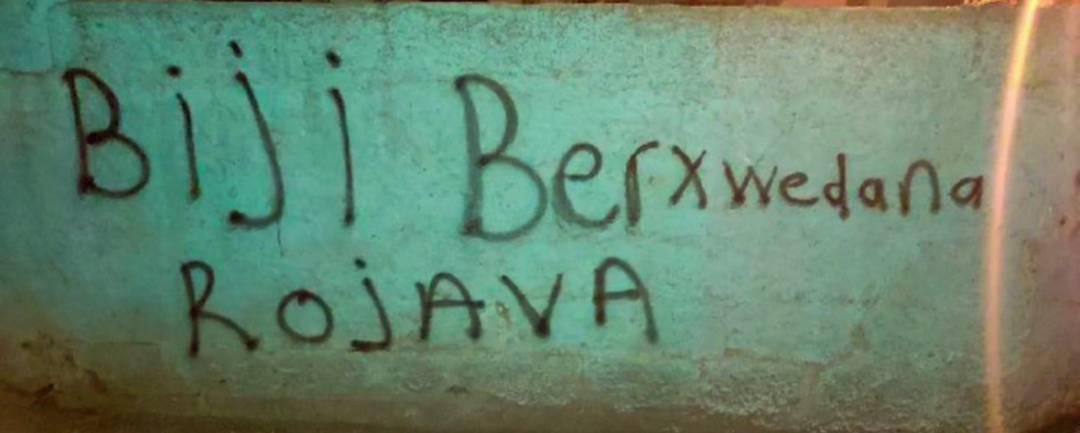 Biji Berxwedana
ROJAVA